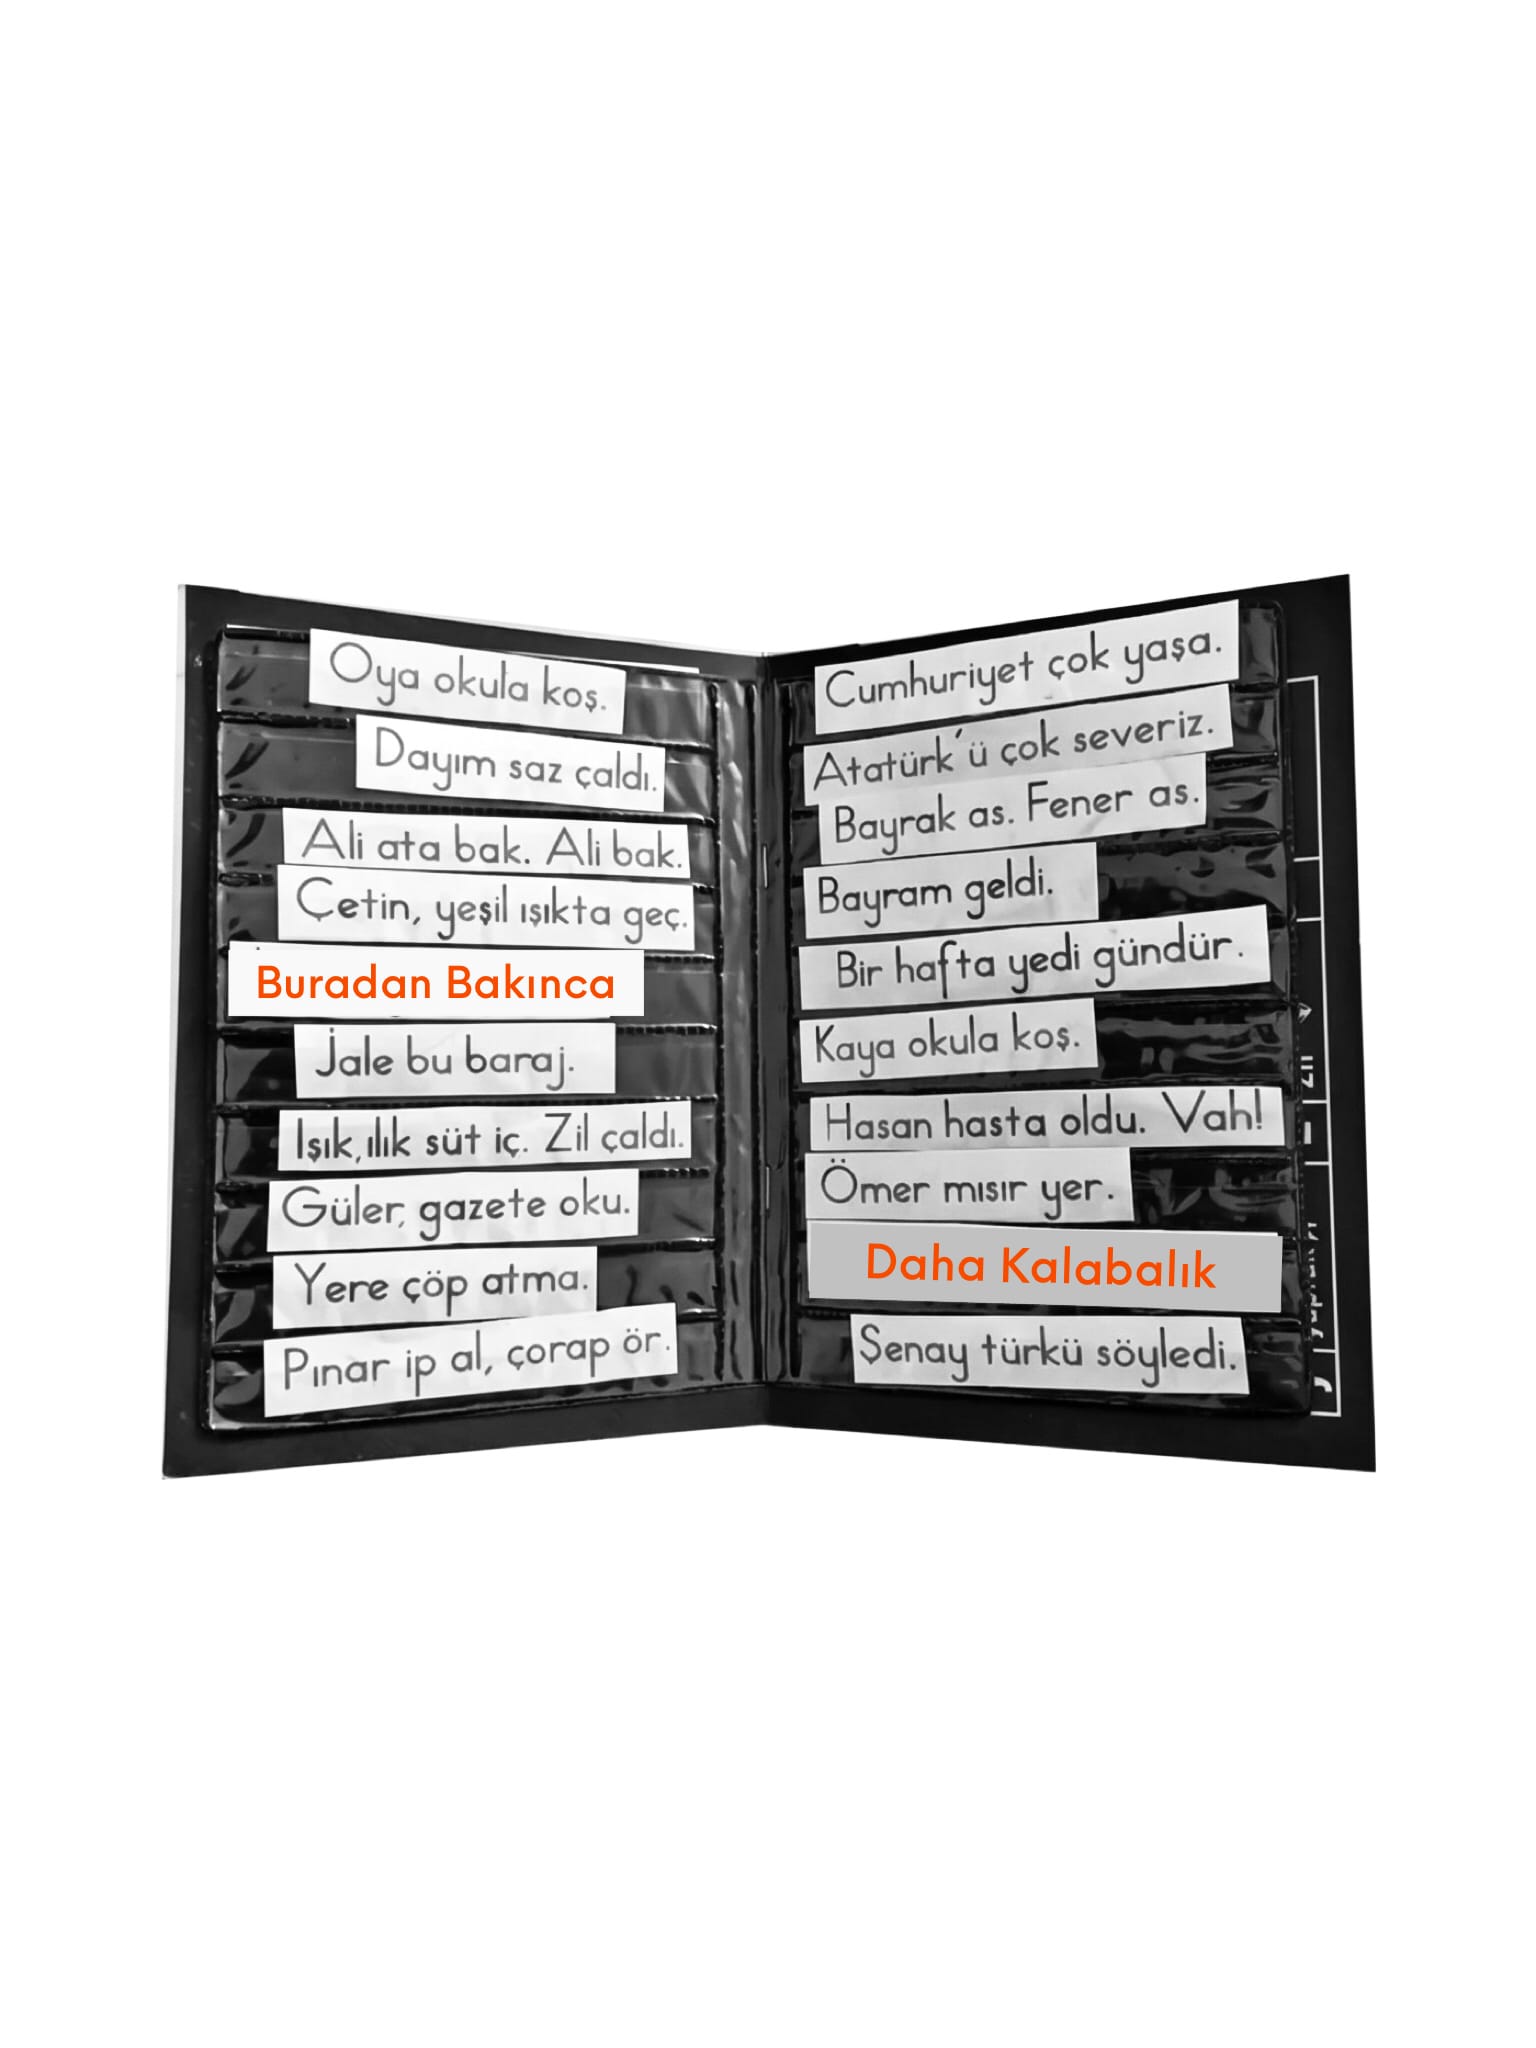 Oya okula koş.
Dayım saz çaldı.
Ali ata bak. Ali bak.
Çetin, yeşil ışıkta geç.
Buradan Bakınca
Jale bu baraj.
Işık, ılık süt iç. Zil çaldı.
Güler, gazete oku.
Yere çöp atma.
Pınar ip al, çorap ör.
Cumhuriyet çok yaşa.
Atatürk'ü çok severiz.
Bayrak as. Fener as.
Bayram geldi.
Bir hafta yedi gündür.
Kaya okula koş.
Hasan hasta oldu. Vah!
Ömer mısır yer.
Daha Kalabalık
Şenay türkü söyledi.